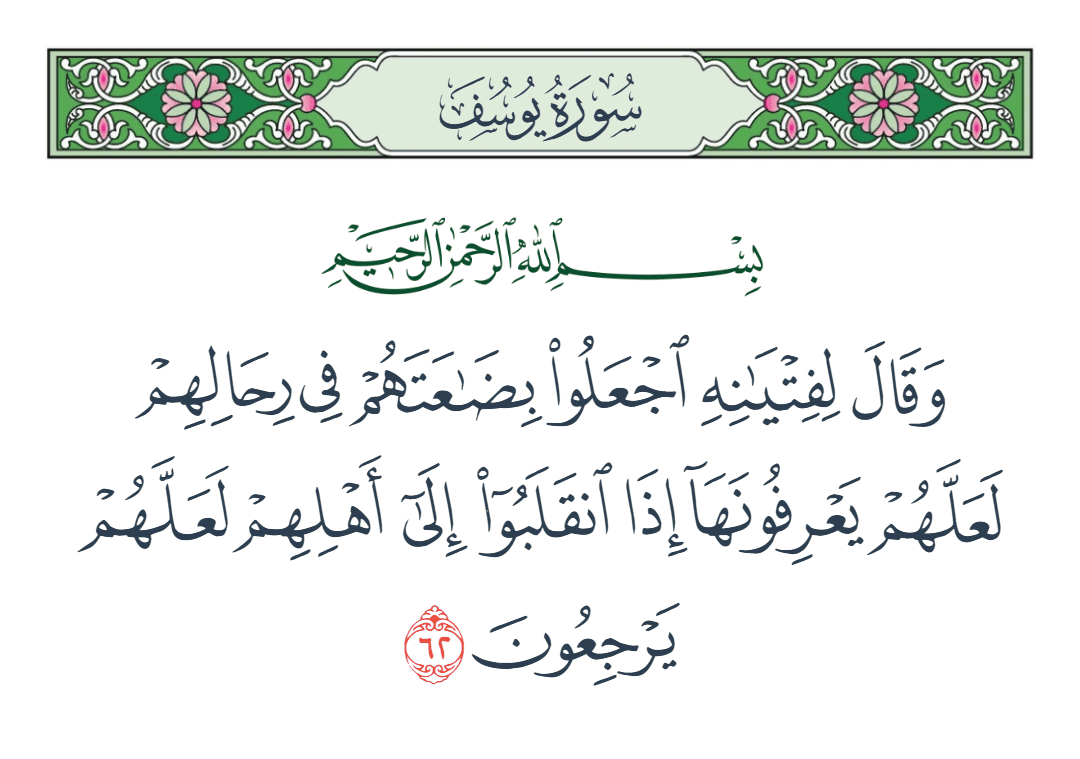 سُورَةُ يُوسُفَ
بِسْمِ ٱللَّهِ ٱلرَّحْمَٰنِ ٱلرَّحِيمِ
وَقَالَ لِفِتْيَٰنِهِ ٱجْعَلُوا۟ بِضَٰعَتَهُمْ فِى رِحَالِهِمْ
لَعَلَّهُمْ يَعْرِفُونَهَآ إِذَا ٱنقَلَبُوٓا۟ إِلَىٰٓ أَهْلِهِمْ لَعَلَّهُمْ
يَرْجِعُونَ ٦٢